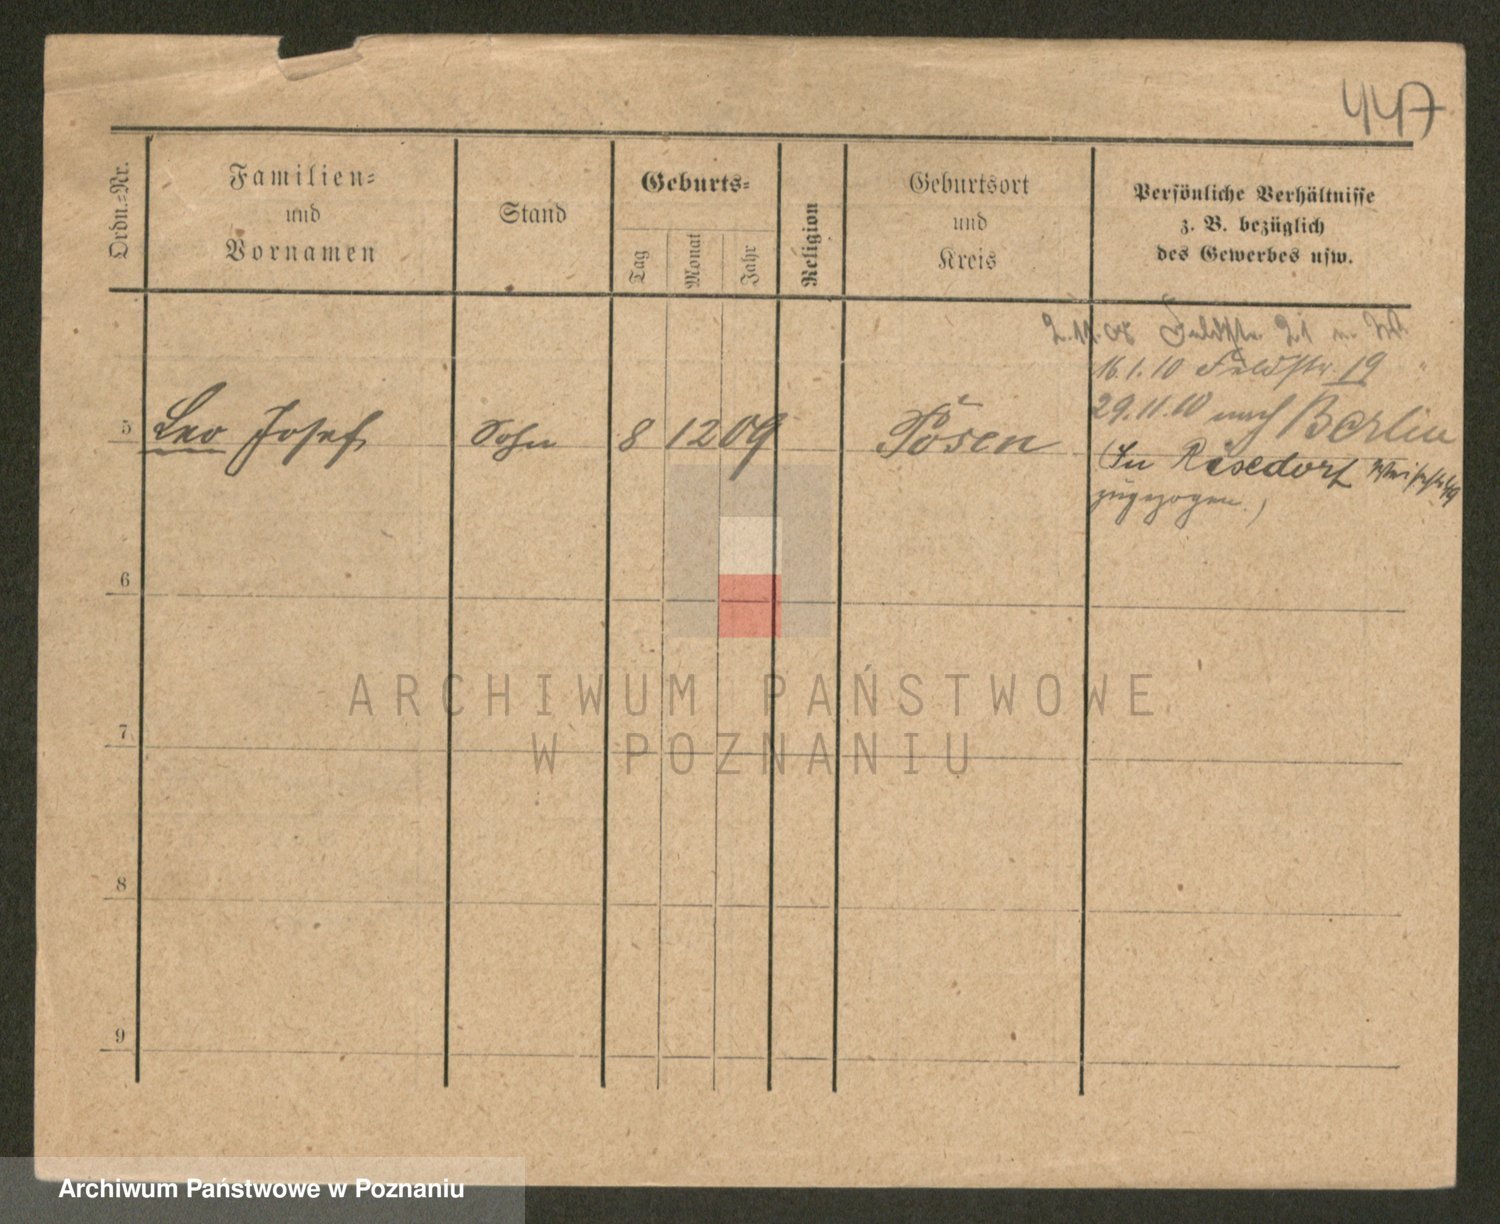 447
Ordn.=Nr.
Familien=
und
Vornamen
Stand
Geburts=
Tag
Monat
Jahr
Religion
Geburtsort
und
Kreis
Persönliche Verhältnisse
z. B. bezüglich
des Gewerbes usw.
16.1.10 Feldstr. 19 "
29.11.10 nach Berlin
5 Leo Josef Sohn 8 12 09 Posen
(In
zugezogen.)
6
7
8
9
ARCHIWUM PAŃSTWOWE
W POZNANIU
Archiwum Państwowe w Poznaniu